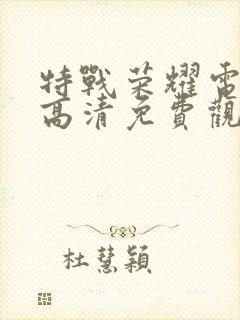 特戰荣耀電
高清免費觀
杜慧穎